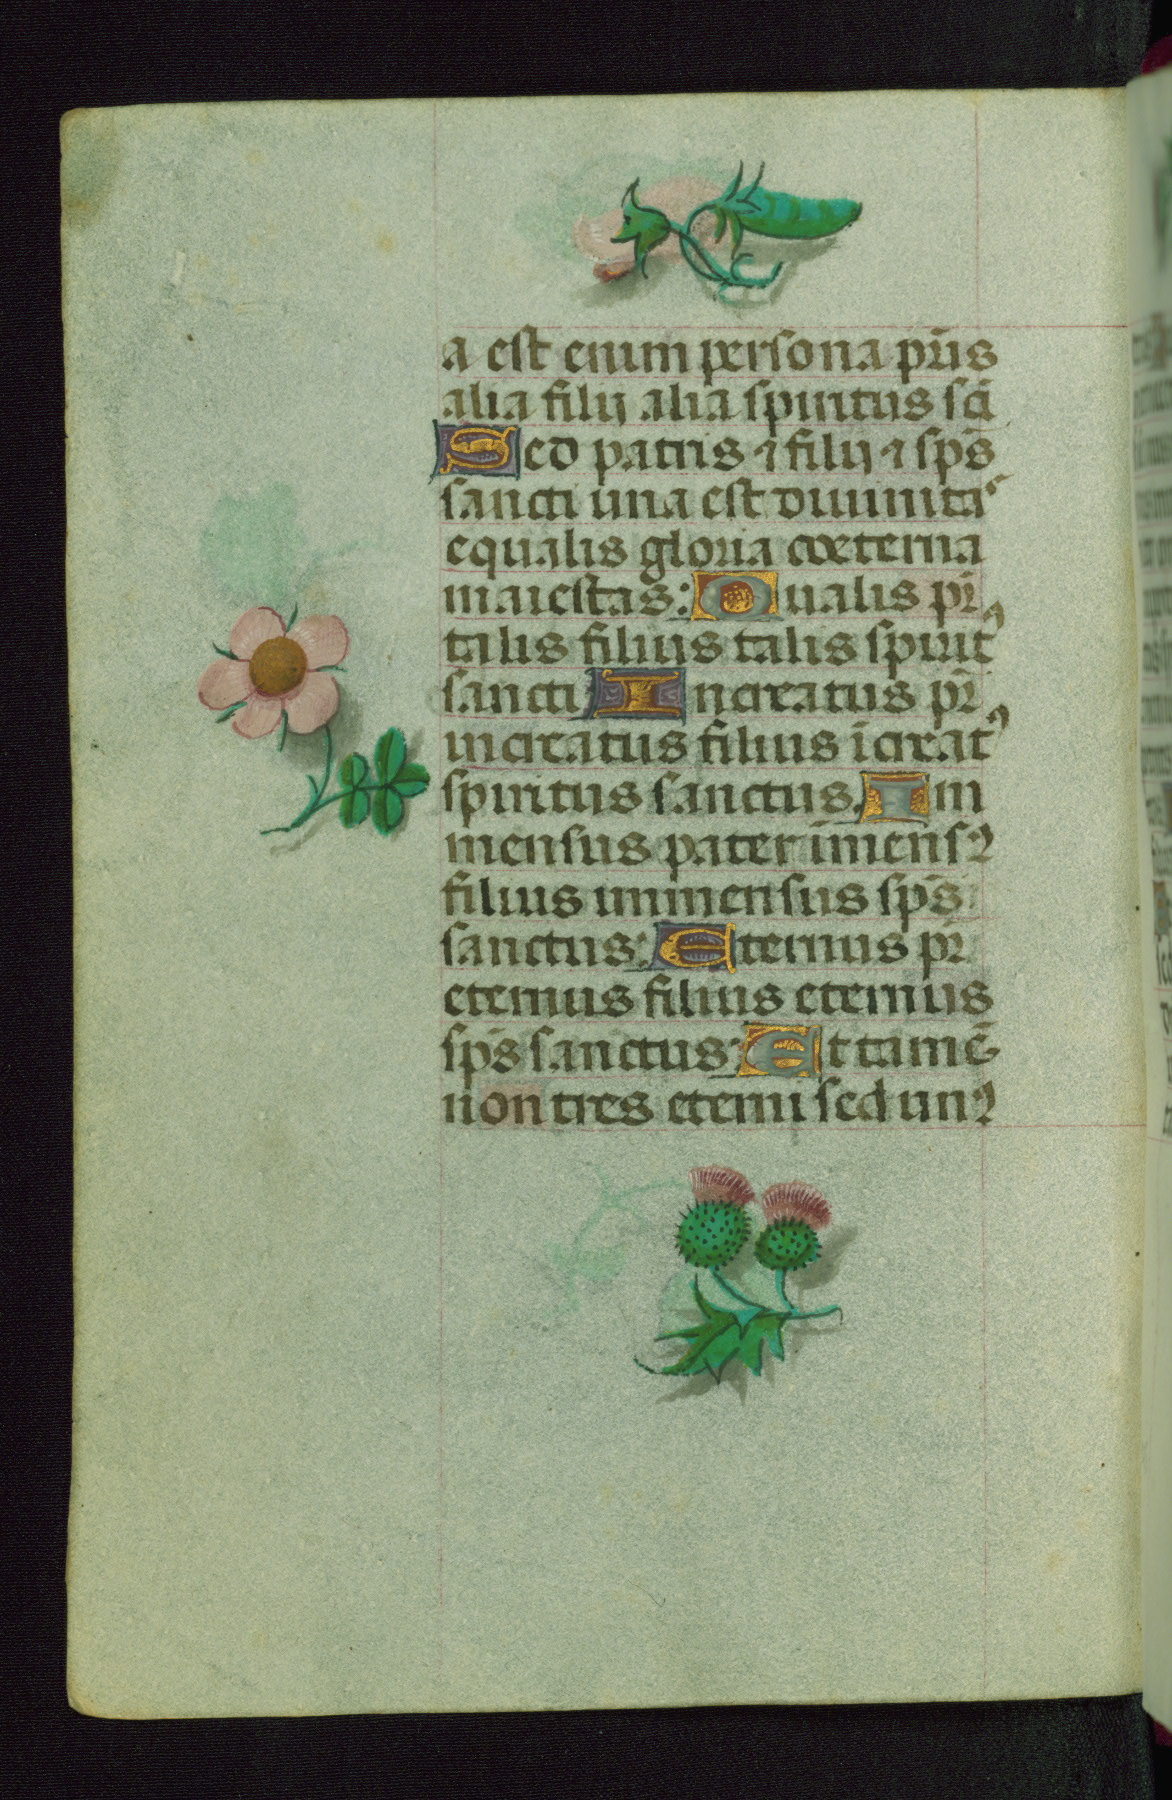 a est enim persona pr̄is
alia filij alia spiritus sc̄i
Sed patris ⁊ filij ⁊ sp̄s
sancti una est diuinitaˢ
equalis gloria coeterna
maiestas: Qualis pr̄
talis filius talis spiritꝰ
sancti Increatus pr̄
increatus filius īcreatꝰ
spiritus sanctus. Im
mensus pater īmensꝰ
filius immensus sp̄s
sanctus: Eternus pr̄
eternus filius eternus
sp̄s sanctus: Et tamē
non tres eterni sed unꝰ